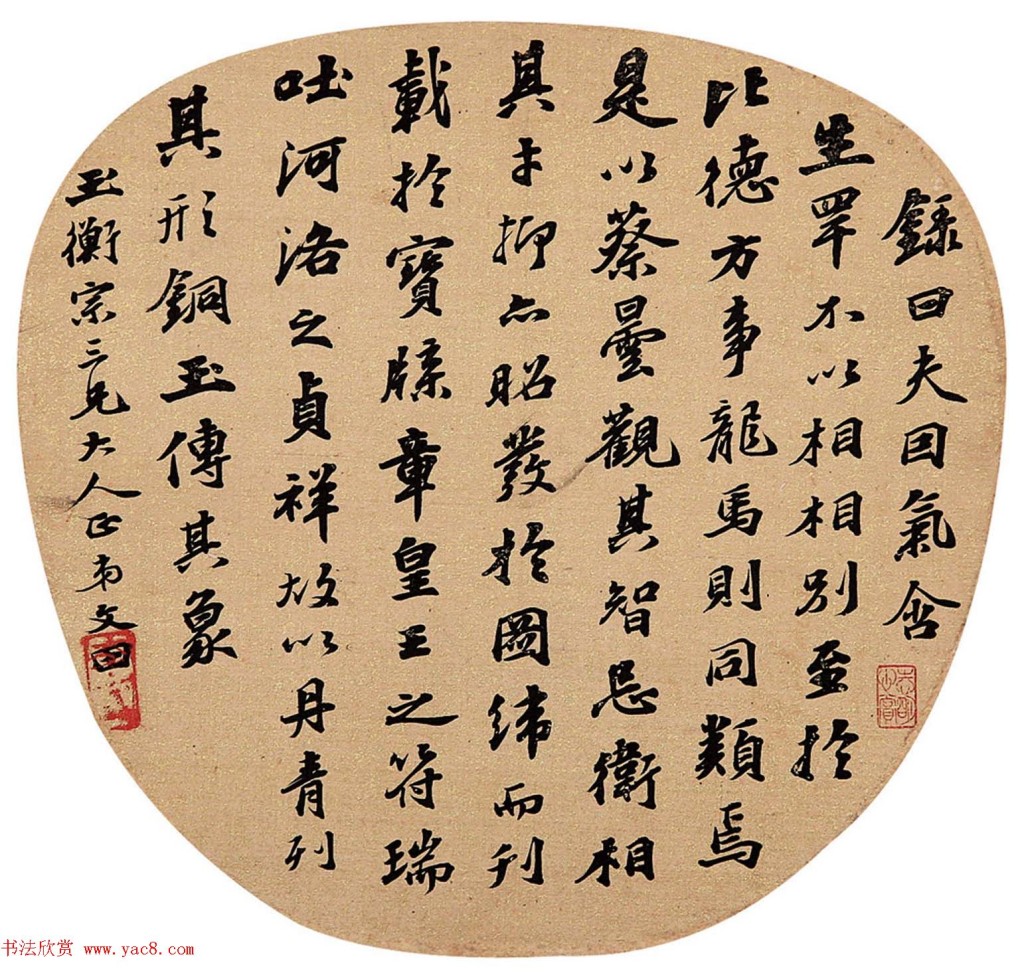 錄曰夫因氣含
生罕不以相相別至於
比德方事龍馬則同類焉
是以蔡曇觀其智忌衛相
其才抑亦昭發於圖緯而刊
載於寶牒章皇王之符瑞
吐河洛之貞祥故以丹青列
其形銅玉傳其象
玉衡宗三兄大人正南文田
书法欣赏 www.yac8.com